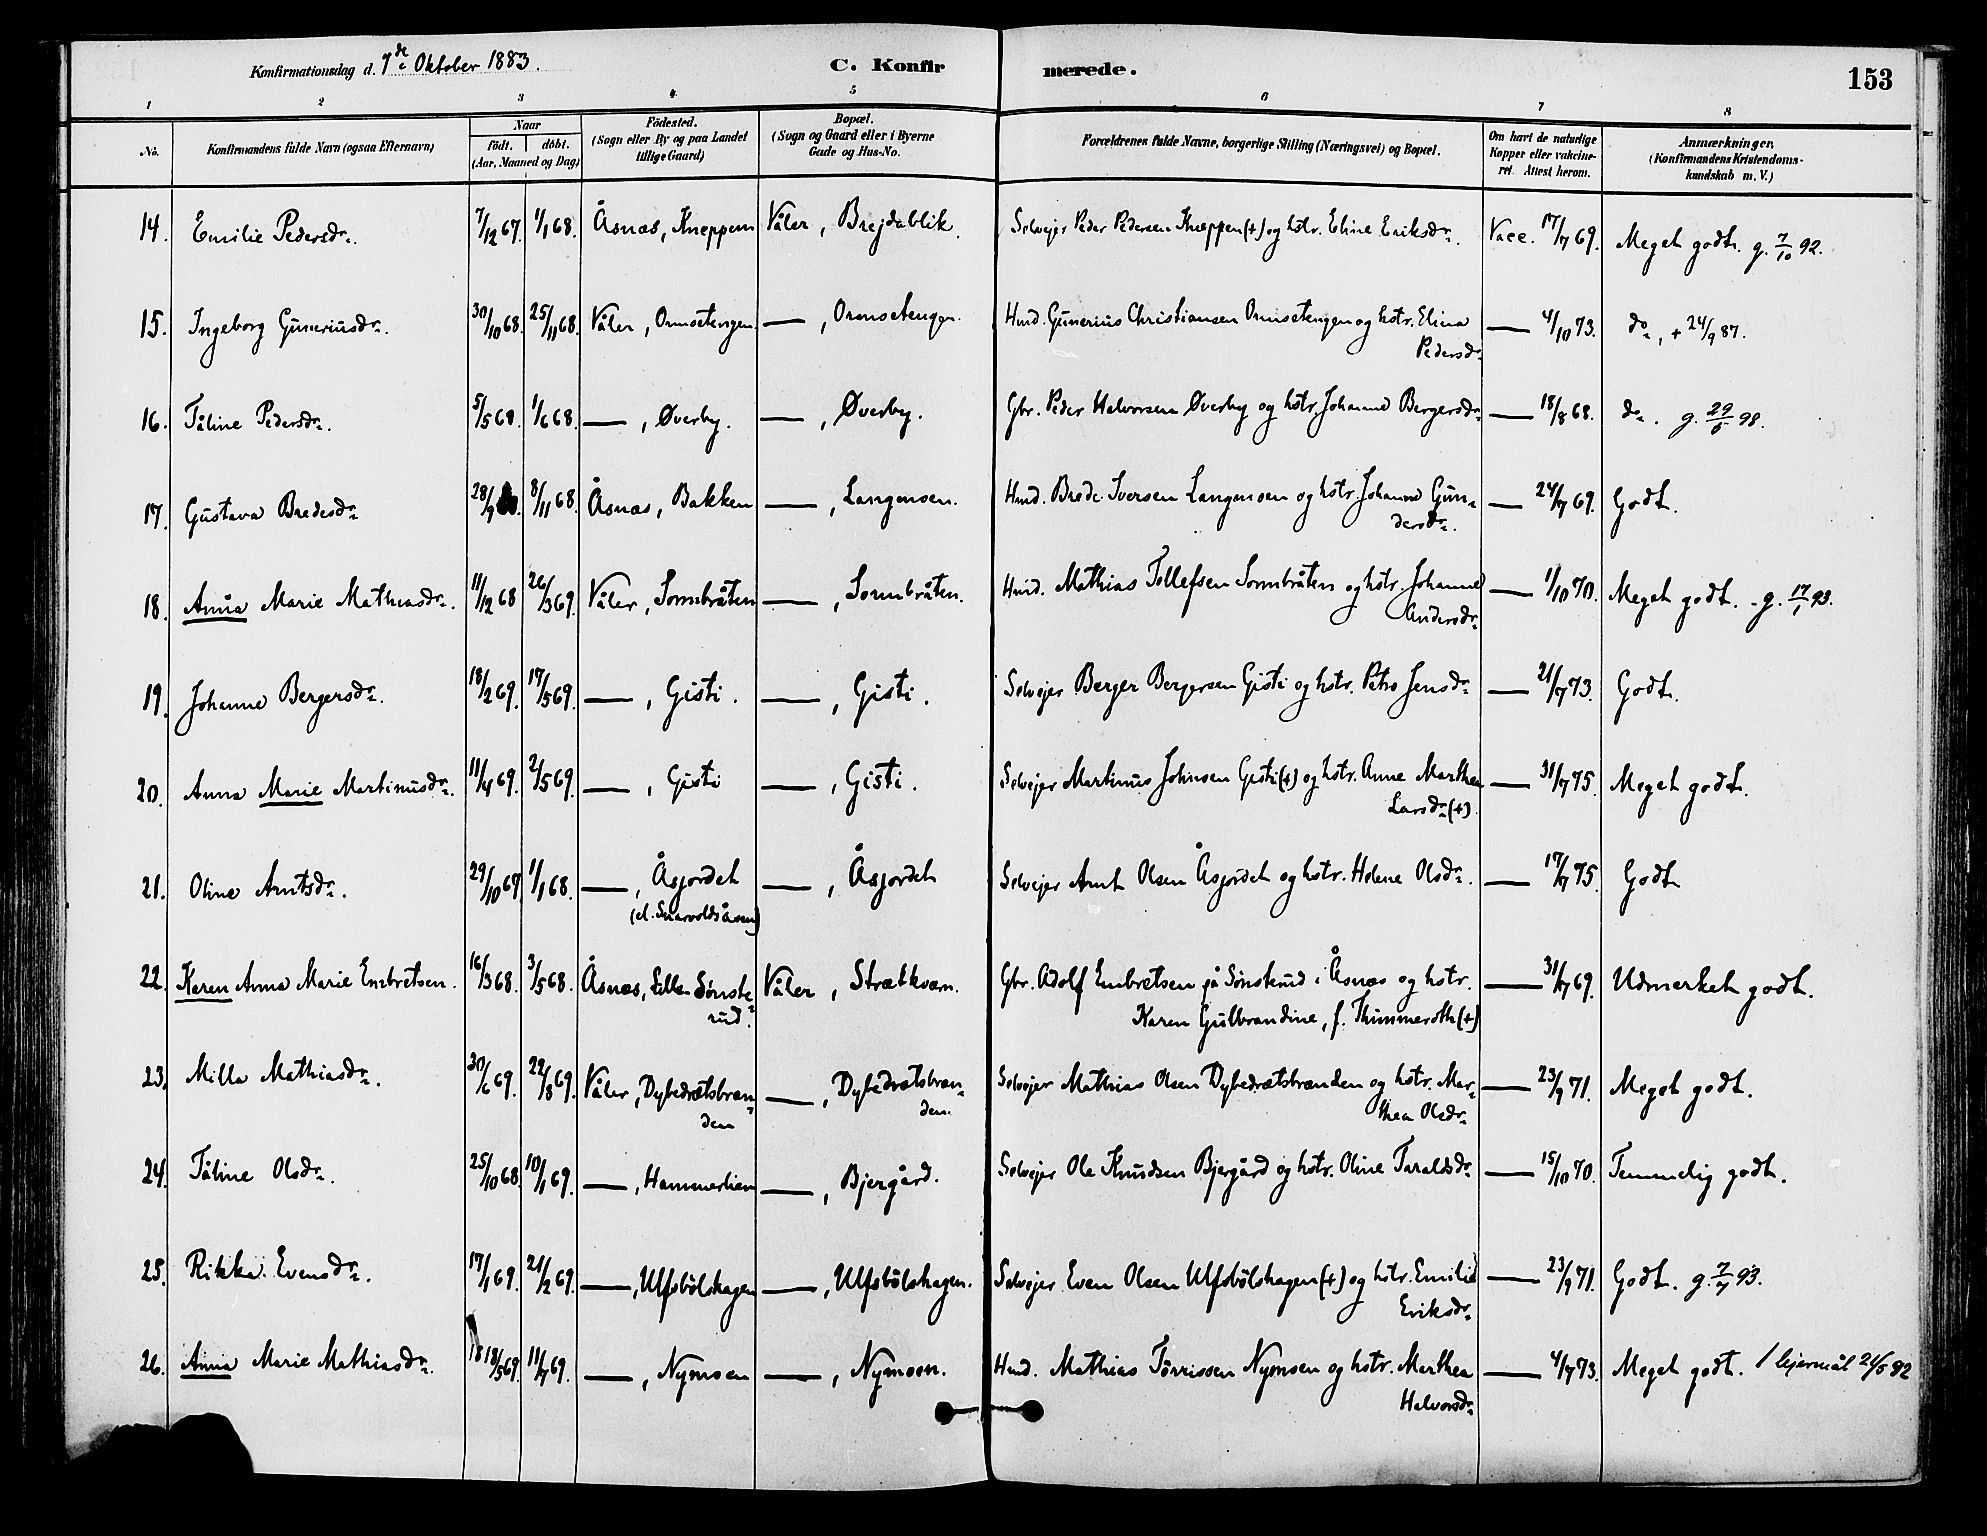 Konfirmationsdag d. 7de Oktober 1883.
C. Konfirmerede.
153
1 2 3 4 5 6 7 8
No. Konfirmandens fulde Navn (ogsaa Efternavn) Naar födt. döbt. (Aar, Maaned og Dag) Födested. (Sogn eller By og paa Landet tillige Gaard) Bopæl. (Sogn og Gaard eller i Byerne Gade og Hus-No. Forældrenes fulde Navne, borgerlige Stilling (Næringsvei) og Bopæl. Om havt de naturlige Kopper eller vakcineret. Attest herom. Anmærkninger. (Konfirmandens Kristendomskundskab m. V.)
14. Emilie Pedersdr. 7/12 67. 1/1 68. Åsnæs, Knæppen Våler, Brejdablik. Selvejer Peder Pedersen Knæppen (+) og hstr. Eline Eriksdr. Vacc. 17/7 69. Meget godt. g. 7/10 92.
15. Ingeborg Guneriusdr. 30/10 68. 25/11 68. Våler, Ormsetengen —, Ormsetengen. Hmd. Gunerius Christiansen Ormsetengen og hstr. Elina — 4/10 73. do, + 24/9 87.
Pedersdr
16. Tåline Pedersdr. 5/5 68. 1/6 68. —, Øverby. —, Øverby. Gbr. Peder Halvorsen Øverby og hstr. Johanne Bergersdr — 18/8 68. do. g. 29/6 98.
17. Gustava Bredesdr 28/9 8/11 68. Åsnæs, Bakken —, Langmoen. Hmd. Brede Iversen Langmoen og hstr. Johanne Gun- — 24/7 69. Godt.
dersdr.
18. Anna Marie Mathiasdr. 11/12 68 26/3 69. Våler, Sormbråten —, Sormbråten. Hmd. Mathias Tollefsen Sormbråten og hstr. Johanne — 1/10 70. Meget godt. - g. 17/1 93.
Andersdr
19. Johanne Bergersdr. 18/2 69. 17/5 69. —, Gisti. —, Gisti. Selvejer Berger Bergersen Gisti og hstr. Petro Jensdr — 21/7 73. Godt.
20. Anna Marie Martinusdr. 11/4 69. 2/5 69. —, Gisti —, Gisti. Selvejer Martinus Johnsen Gisti (+) og hstr. Anne Marthea — 31/7 75. Meget godt.
Larsdr (+)
21. Oline Arntsdr. 29/10 67. 1/1 68. —, Åsjordet —, Åsjordet Selvejer Arnt Olsen Åsjordet og hstr. Helene Olsdr. — 17/7 75. Godt
(el. Snarvoldsåsen)
22. Karen Anna Marie Embretsen. 16/3 68. 3/5 68. Åsnæs, Lille Sønste- Våler, Strætkværn. Gbr. Adolf Embretsen på Sønsterud i Åsnæs og hstr. — 31/7 69. Udmerket godt.
rud. Karen Gulbrandine, f. Thimmeroth (+)
23. Milla Mathiasdr. 30/6 69. 22/8 69. Våler, Dybedrætsbræn- —, Dybedrætsbræn- Selvejer Mathias Olsen Dybedrætsbrænden og hstr. Mar- — 23/9 71. Meget godt.
den den. thea Olsdr
24. Tåline Olsdr. 25/10 68. 10/1 69. —, Hammerlien —, Bjergård. Selvejer Ole Knudsen Bjergård og hstr. Oline Taraldsdr — 15/10 70. Temmelig godt.
25. Rikka Evensdr. 17/1 69. 21/2 69. —, Ulfsbölshagen —, Ulfsbölshagen. Selvejer Even Olsen Ulfsbölshagen (+) og hstr. Emilie — 23/9 71. Godt. g. 7/7 93.
Eriksdr
26. Anna Marie Mathiasdr. 18/5 69. 11/7 69. —, Nymoen —, Nymoen. Hmd. Mathias Tørrissen Nymoen og hstr. Marthea — 4/7 73. Meget godt. 1 lejermål 21/5 92
Halvorsdr